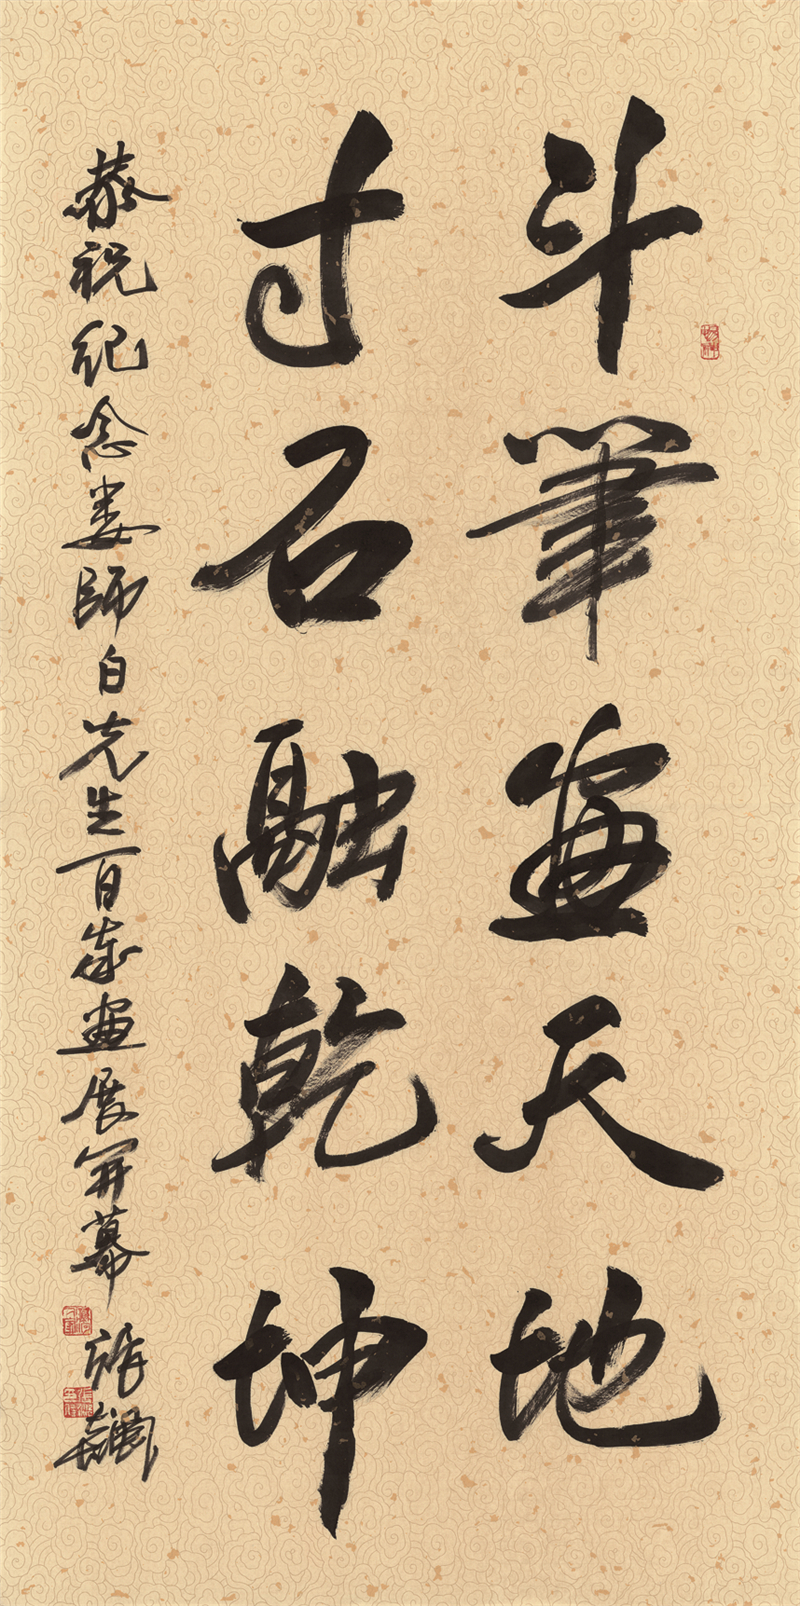 斗筆畫天地
寸石融乾坤
恭祝纪念娄師白先生百歲畫展開幕